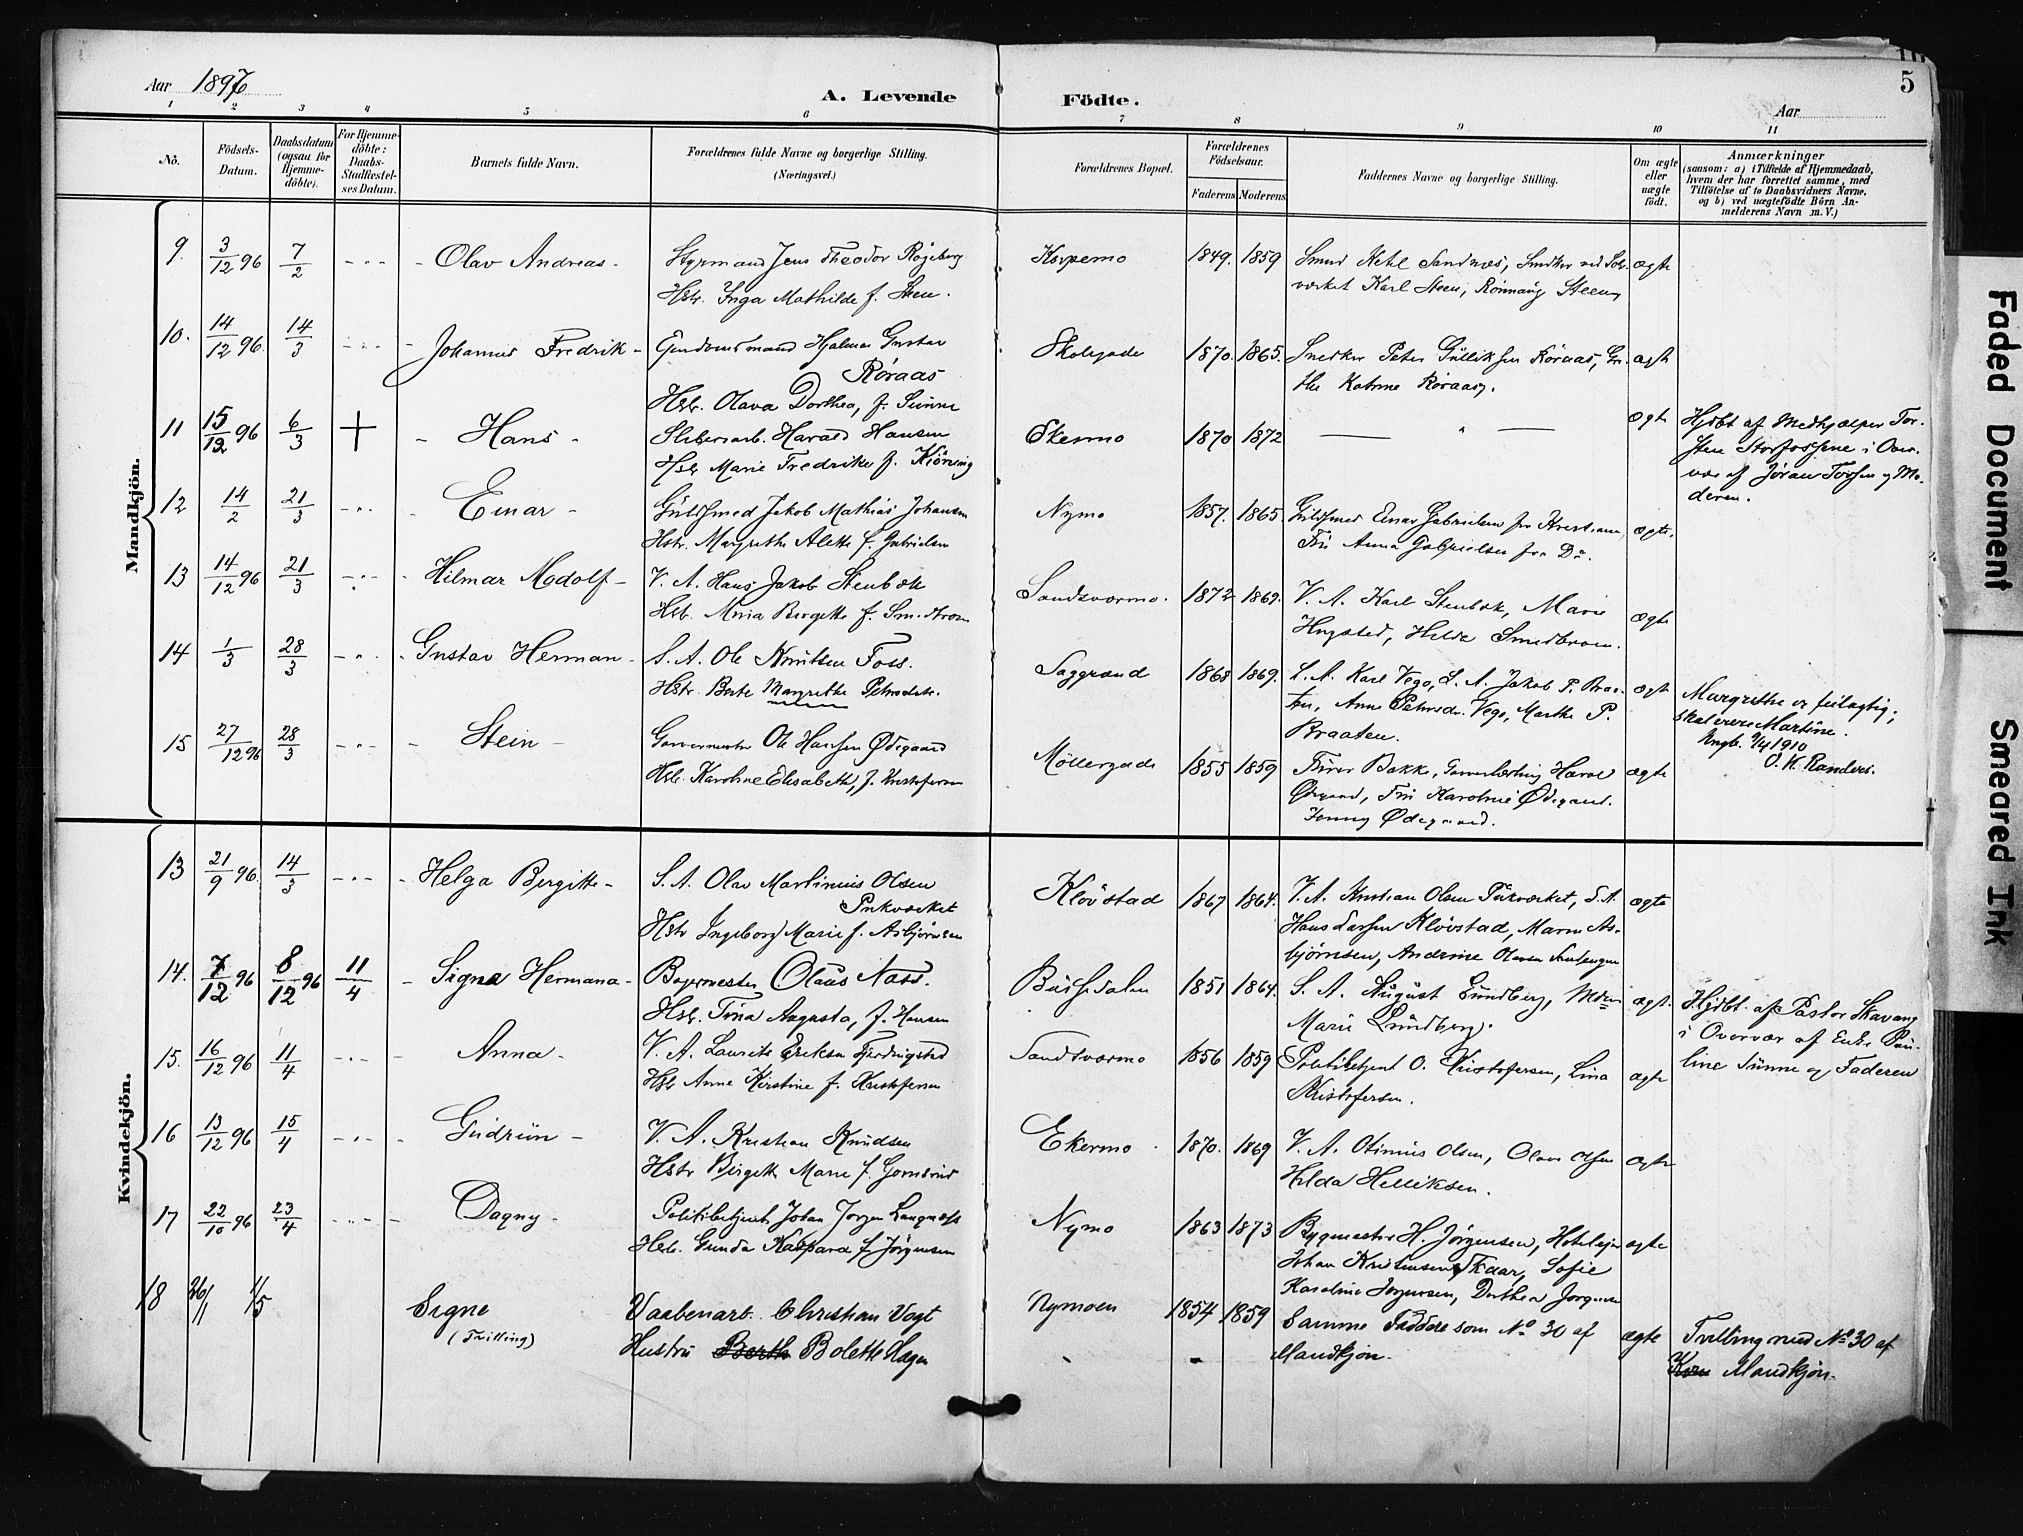 Aar 1897
A. Levende Födte.
5
Aar
1 2 3 4 5 6 7 8 9 10 11
No.
Födsels-Datum.
Daabsdatum (ogsaa for Hjemme-döbte).
For Hjemme-döbte: Daabs-Stadfæstel-ses Datum.
Barnets fulde Navn.
Forældrenes fulde Navne og borgerlige Stilling.
(Næringsvei.)
Forældrenes Bopæl.
Forældrenes Födselsaar.
Faderens Moderens
Faddernes Navne og borgerlige Stilling.
Om ægte eller uægte födt.
Anmærkninger
(saasom: a) i Tilfælde af Hjemmedaab,
hvem der har forrettet samme, med
Tilföielse af to Daabsvidners Navne.
og b) ved uægtefödte Börn An-
melderens Navn m. V.)
Mandkjön.
9. 3/12 96 7/2 Olav Andreas Styrmand Jens Theodor Røgeberg 1849. 1859 Smed Ketil Sandnæs, ægte
Hstr. Inga Mathilde f. Steen. værket Karl Steen, Rønnaug Steen
10. 14/12 96 14/3 Johannes Fredrik Hjalmar Gustav Skolegade 1870. 1865. Snedker Peter Gulliksen Røraas, ægte
Røraas Katrine Røraas.
Hstr. Olava Dorthea, f. Sunne
11 15/12 96 6/3 + Hans Sliberarb. Harald Hansen Ekermo 1870 1872 ægte Hjdbt af Medhjælper Tor-
Hstr Marie Fredrikke f. Kiöning i Over-
vær af Jøran og Mo-
deren.
12 14/2 21/3 Einar Guldsmed Jakob Mathias Johansen Nymo 1857. 1865. Guldsmed Einar Gabrielsen fra ægte.
Hstr. Margrethe Alette f. Gabrielsen Anna Gabrielsen fra Do.
13 14/12 96 21/3 Hilmar Modolf V. A. Hans Jakob Stenbæk Sandsværmo. 1872 1869. V. A. Karl Stenbæk, Marie ægte
Hstr. Bergette f. Hilda Smedbroen.
14 1/3 28/3 Gustav Herman S. A. Ole Knutsen Foss. Saggrænd 1868 1869. L. A. Karl Vego, L. A. Jakob P. Braa- ægte Margrethe er feilagtig;
Hstr. Berte Margrethe Petersdtr. ten, Anne Petersdr. Vego, Marthe P. skal være Martine.
Braaten. 1910
O. H. Randers.
15 27/12 96 28/3 Stein Garvermester Ole Hansen Ødegaard Möllergade 1855 1859 Bakke, Harald ægte
Hstr. Karoline Elisabeth, f. Kristofersen Ødegaard, Karoline Ødegaard.
Jenny Ødegaard.
Kvindekjön.
13 21/9 96 14/3 Helga Bergitte S. A. Olav Martinius Olsen Klövstad 1867 1864. V. A. Kristian Olsen Pukværket, S. A. ægte
Pukværket Hans Larsen Klövstad, Maren As-
Hstr Ingeborg Marie f. Asbjörnsen bjørnsen, Andrine Olava
14. 7/12 96 8/12 96 11/4 Signe Hermana Bøgermester Olaus Næss. 1851 1864. S. A. August Lundberg, ægte. Hjdbt. af Pastor Skavang
Hstr. Tina Augusta, f. Hansen Marie Lundberg. i Overvær af Enke Pau-
15. 16/12 96 11/4 Anna V. A. Laurits Eriksen Fjerdingstad Sandsværmo 1856 1859 Politibetjent O. Kristofersen, Lina ægte line Sunne og Faderen
Hstr Anne Kirstine f. Kristofersen Kristofersen.
16 13/12 96 15/4 Gudrun V. A. Kristian Knudsen Ekermo 1870. 1869 V. A. Otinius Olsen, Olava Olsen ægte
Hstr Birgitte Marie f. Hilda Helliksen.
17 22/10 96 23/4 Dagny Politibetjent Johan Jørgen Langnæss Nymo 1863 1873 Bygmester H. Jörgensen, ægte
Hstr. Gunda Kaspara f. Jörgensen Johan Kristensen Skaar, Sofie
Karoline Jørgensen, Dorthea Jørgensen
18 26/1 1/5 Signe Vaabenarb. Christian Vogt Nymoen 1854 1859 Samme Faddere som No 30 af ægte Tvilling med No 30 af
(Tvilling) Hustru Berth Bolette Hagen Mandkjön. Kvin Mandkjön.
Faded Document
Smeared Ink